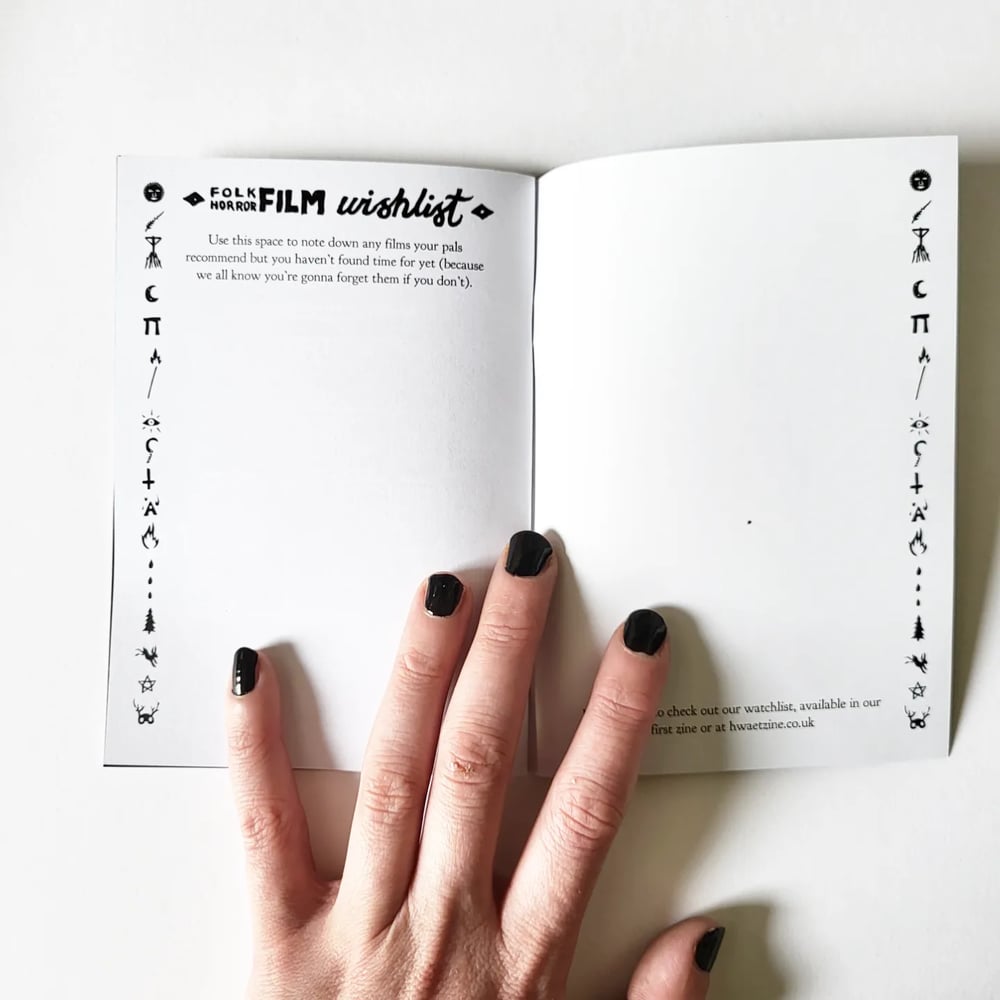 FOLK HORROR FILM wishlist
Use this space to note down any films your pals
recommend but you haven't found time for yet (because
we all know you're gonna forget them if you don't).
check out our watchlist, available in our
first zine or at hwaetzine.co.uk